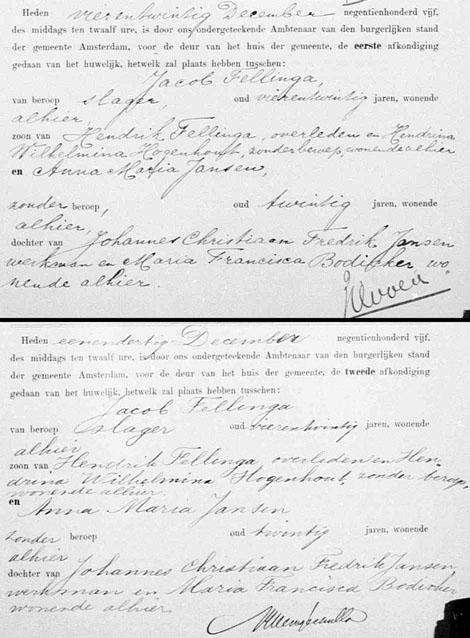 Heden vierentwintig December negentienhonderd vijf,
des middags ten twaalf ure, is door ons ondergeteekende Ambtenaar van den burgerlijken stand
der gemeente Amsterdam, voor de deur van het huis der gemeente, de eerste afkondiging
gedaan van het huwelijk, hetwelk zal plaats hebben tusschen:
Jacob Fellinga,
van beroep slager, oud vierentwintig jaren, wonende
alhier,
zoon van Hendrik Fellinga, overleden en Hendrina
Wilhelmina Hogenhout, zonder beroep, wonende alhier
en Anna Maria Jansen,
zonder beroep, oud twintig jaren, wonende
alhier,
dochter van Johannes Christiaan Fredrik Jansen
werkman en Maria Francisca Bodicker wo-
nende alhier.
Heden eenendertig December negentienhonderd vijf,
des middags ten twaalf ure, is door ons ondergeteekende Ambtenaar van den burgerlijken stand
der gemeente Amsterdam, voor de deur van het huis der gemeente, de tweede afkondiging
gedaan van het huwelijk, hetwelk zal plaats hebben tusschen:
Jacob Fellinga
van beroep slager oud vierentwintig jaren, wonende
alhier
zoon van Hendrik Fellinga overleden en Hen-
drina Wilhelmina Hogenhout, zonder beroep,
wonende alhier.
en
Anna Maria Jansen
zonder beroep oud twintig jaren, wonende
alhier
dochter van Johannes Christiaan Fredrik Jansen,
werkman en Maria Francisca Bodicker
wonende alhier.